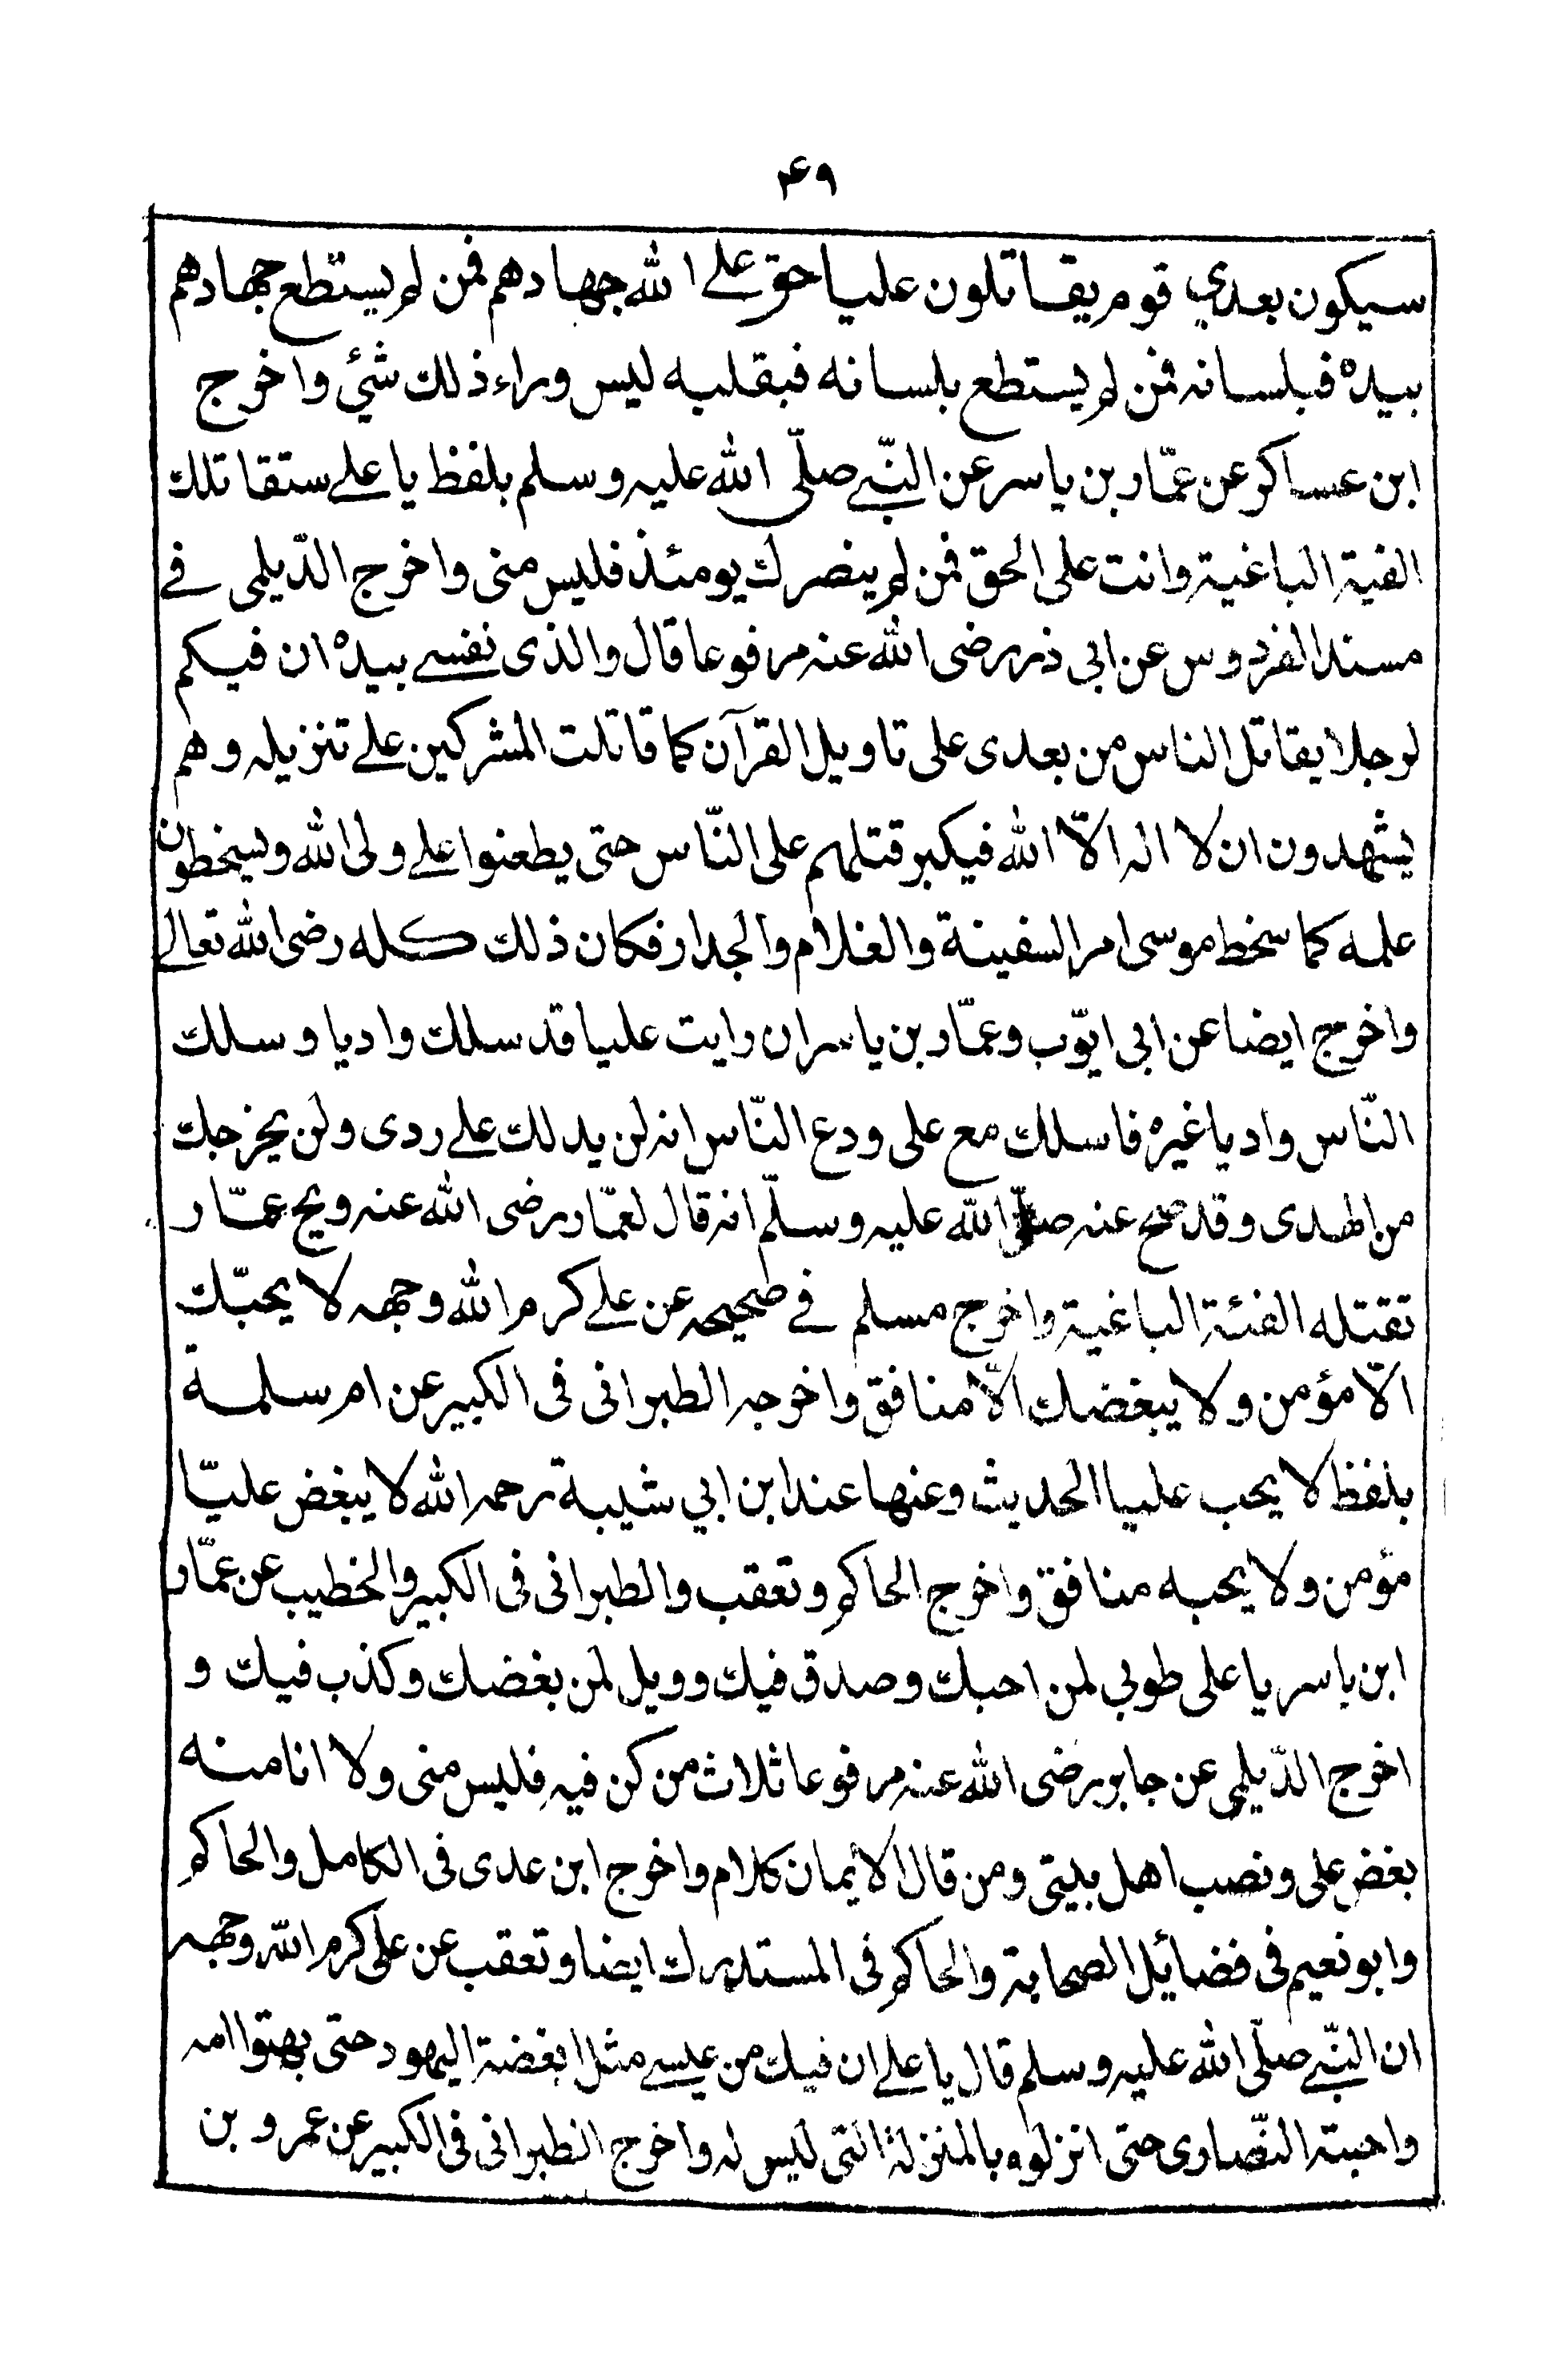 ۴۹
سيكون بعدي قوم يقاتلون عليا حق على الله جهادهم فمن لم يستطع جهادهم
بيده فبلسانه فمن لم يستطع بلسانه فبقلبه ليس وراء ذلك شئ واخرج
ابن عساكر عن عمّار بن ياسر عن النّبي صلّى الله عليه وسلم بلفظ يا علے ستقاتلك
الفية الباغية وانت على الحق فمن لم ينصرك يومئذ فليس منى واخرج الدّيلمى فے
مسند الفردوس عن ابى ذر رضى الله عنه مرفوعا قال والذى نفسے بيده ان فيكم
لرجلا يقاتل الناس من بعدى على تاويل القرآن كما قاتلت المشركين علے تنزيله وهم
يشهدون ان لا اله الاّ الله فيكبر قتلهم على النّاس حتى يطعنوا علے ولى الله ويسخطون
علمه كما سخط موسى امر السفينة والغلام والجدار فكان ذلك كله رضى الله تعالے
واخرج ايضا عن ابى ايّوب وعمّار بن ياسر ان رايت عليا قد سلك واديا وسلك
النّاس واديا غيره فاسلك مع على ودع النّاس انه لن يدلك علے ردى ولن يخرجك
من الهدى وقد صح عنه صلّى الله عليه وسلّم انه قال لعمّار رضى الله عنه ويح عمّار
تقتله الفئة الباغية واخرج مسلم فے صحيحه عن علے كرم الله وجهه لا يحبّك
الاّ مؤمن ولا يبغضك الاّ منافق واخرجه الطبرانى فى الكبير عن ام سلمة
بلفظ لا يحب عليا الحديث وعنها عند ابن ابي شيبة رحمه الله لا يبغض عليّا
مؤمن ولا يحبه منافق واخرج الحاكم وتعقب والطبرانى فى الكبير والخطيب عن عمّار
ابن ياسر يا على طوبي لمن احبك وصدق فيك وويل لمن بغضك وكذب فيك و
اخرج الدّيلمى عن جابر رضى الله عنه مرفوعا ثلاث من كن فيه فليس منى ولا انا منه
بغض على ونصب اهل بيتى ومن قال الايمان كلام واخرج ابن عدى فى الكامل والحاكم
وابو نعيم فى فضائل الصحابة والحاكم فى المستدرك ايضا وتعقب عن على كرم الله وجهه
ان النّبے صلّى الله عليه وسلم قال يا علے ان فيك من عيسے مثل ابغضة اليهود حتى بهتوا امه
واحبته النّصارى حتى انزلوه بالمنزلة التى ليس له واخرج الطبرانى فى الكبير عن عمرو بن